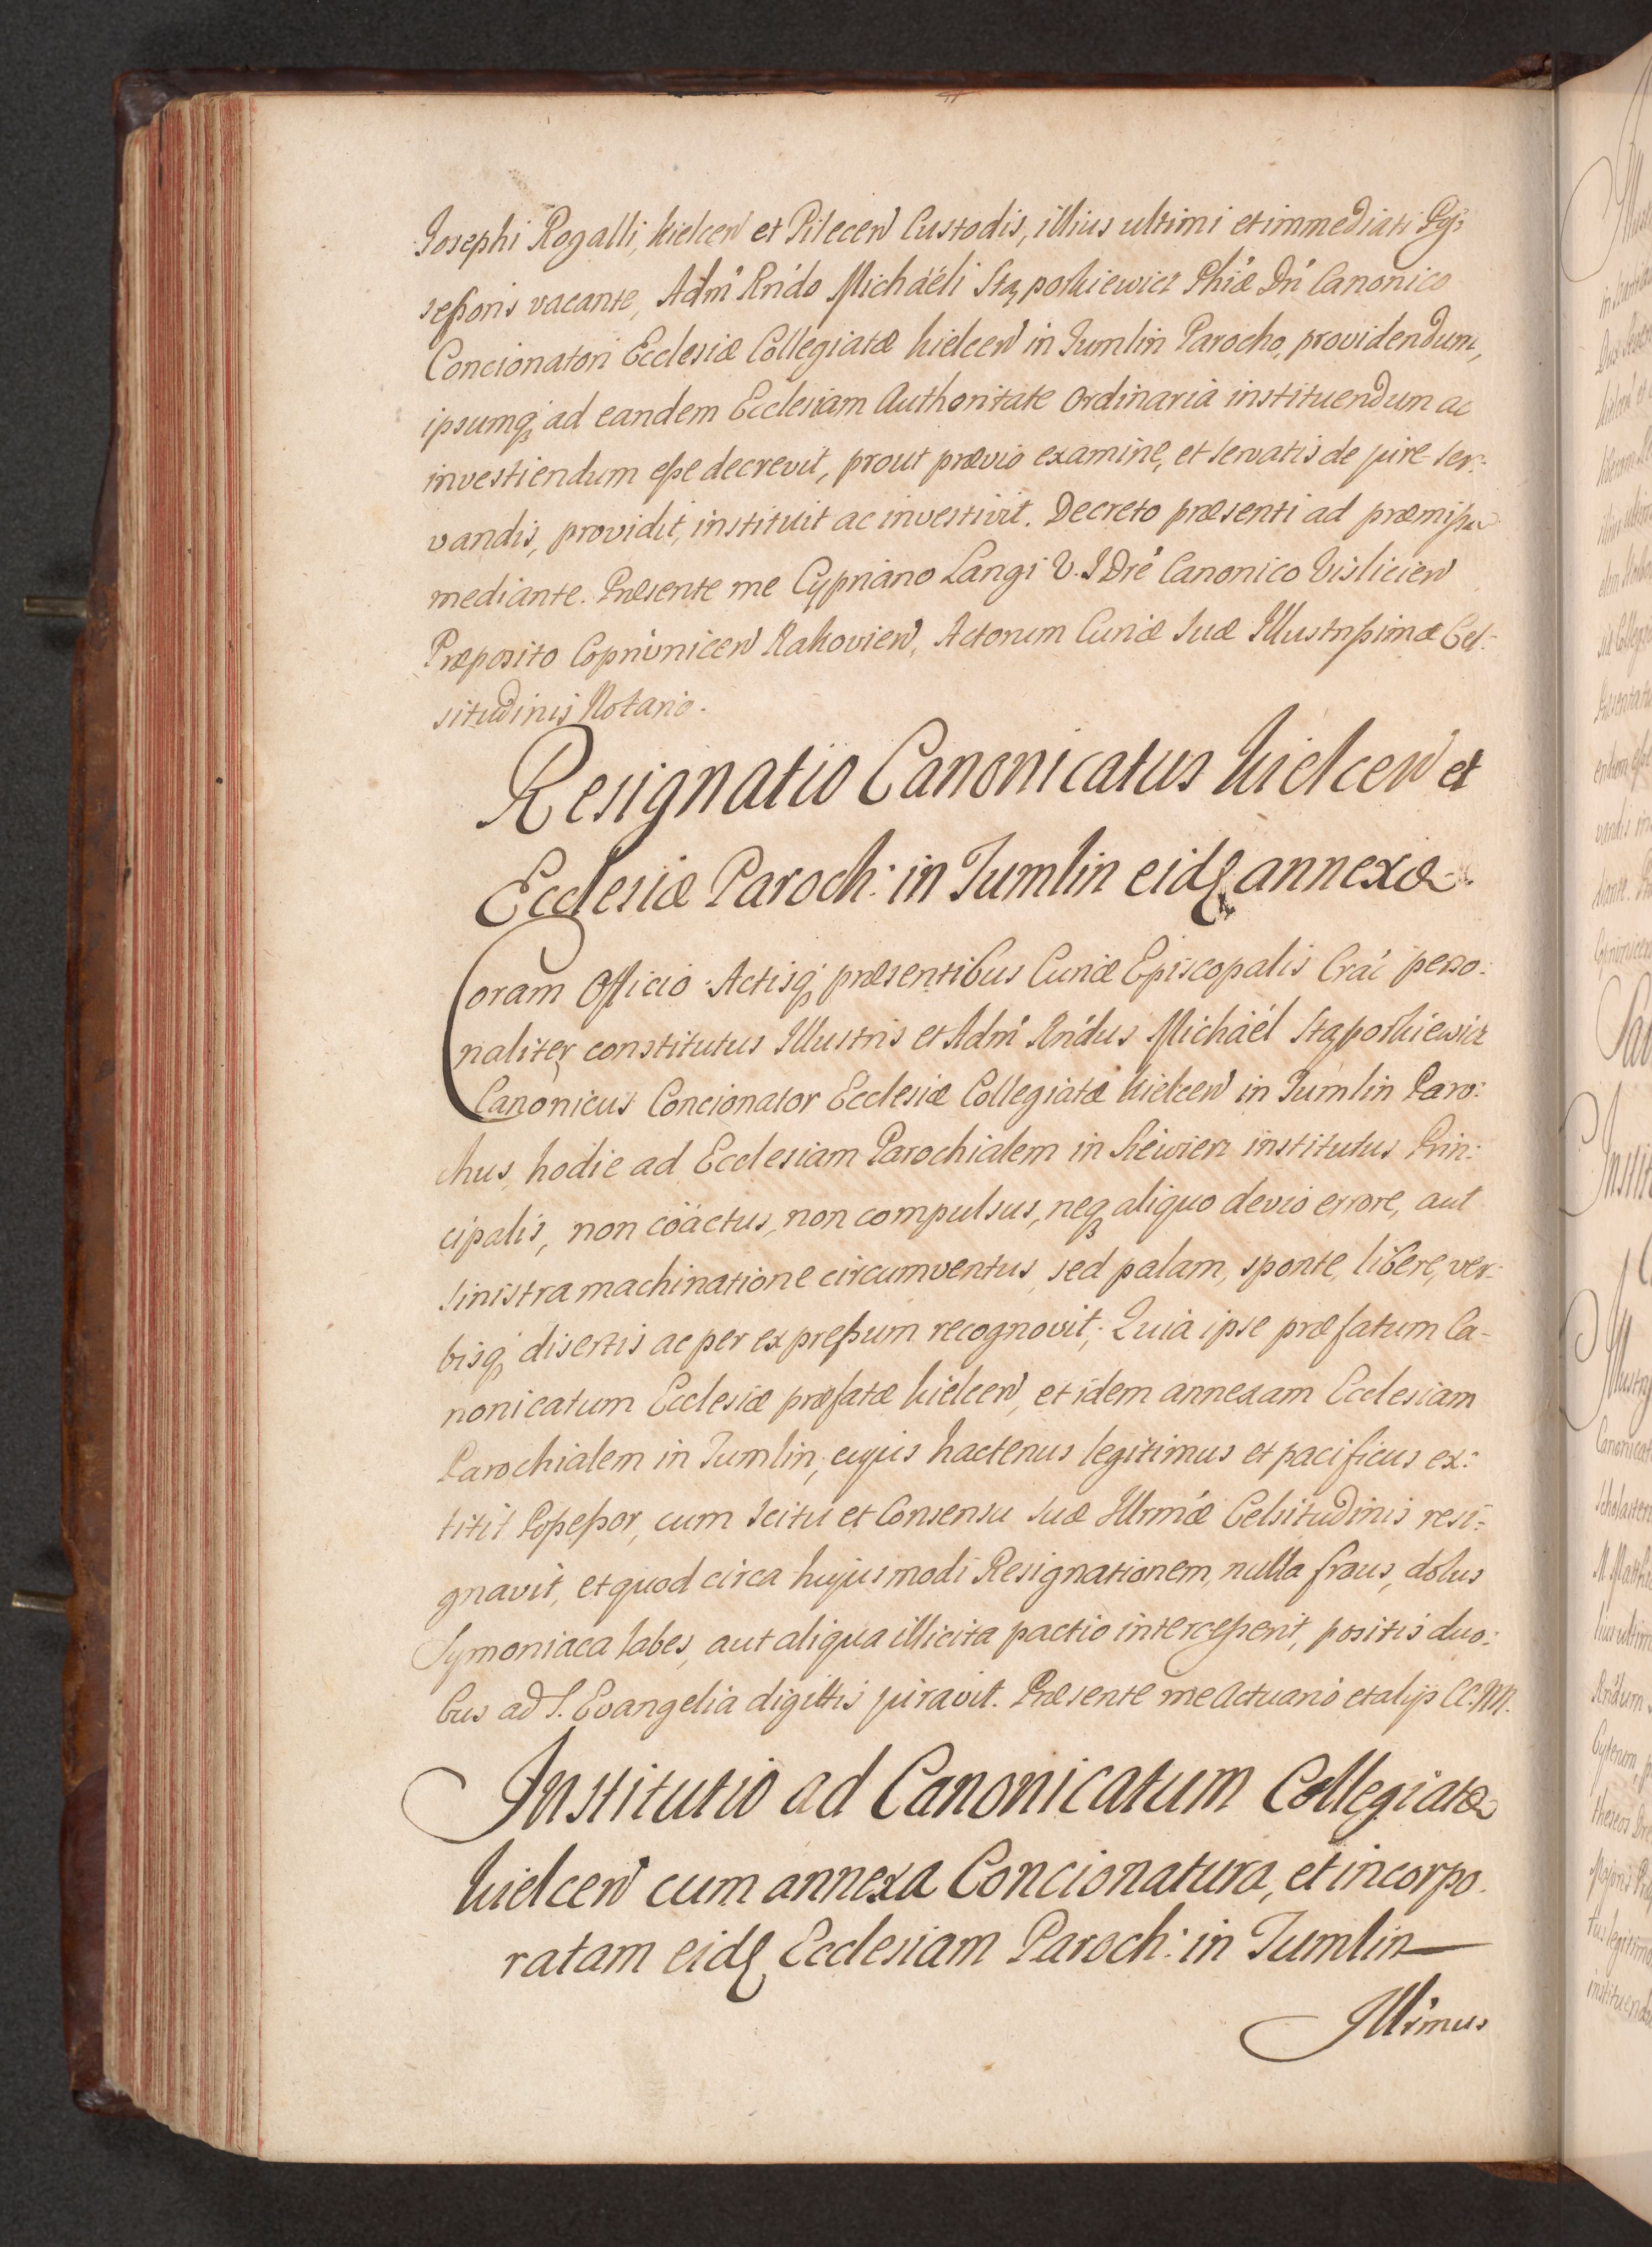 Josephi Rogalli, Kielcen et Pilecen Custodis, illius ultimi et immediati Pos:
seßoris vacante, Adm̃ Rńdo Michaéli Stąporkiewicz Phiæ Dŕi Canonico
Concionatori Ecclesiæ Collegiatæ Kielcen in Tumlin Parocho, providendum,
ipsumq̨ ad eandem Ecclesiam Authoritate Ordinaria instituendum ac
investiendum eße decrevit, prout prævio examine, et servatis de jure ser:
vandis, providit, instituit ac investivit. Decreto præsenti ad præmißa
mediante. Præsente me Cypriano Langi V. I Dre Canonico Vislicien
Præposito Coprivnicen Rakovien, Actorum Curiæ Suæ Illustrißimæ Cel-
situdinis Notario.
Resignatio Canonicatus Kielcen et
Ecclesiæ Paroch: in Tumlin eidꝫ annexæ.
Coram Officio Actisq̨ præsentibus Curiæ Episcopalis Crac̃ perso:
naliter constitutus Illustris et Adm̃ Rńdus Michaél Stąporkiewicz
Canonicus Concionator Ecclesiæ Collegiatæ Kielcen in Tumlin Paro:
chus, hodie ad Ecclesiam Parochialem in institutus Prin:
cipalis, non coactus, non compulsus, neq̨ aliquo devio errore, aut
sinistra machinatione circumventus, sed palam, sponte, libere, ver:
bisq̨ disertis ac per expreßum recognovit; Quia ipse præfatum Ca-
nonicatum Ecclesiæ præfatæ Kielcen, et idem annexam Ecclesiam
Parochialem in Tumlin, cujus hactenus legitimus et pacificus ex:
titit Poßeßor, cum scitu et Consensu Suæ Illrmæ Celsitudinis resi:
gnavit, et quod circa hujusmodi Resignationem, nulla fraus, dolus
Symoniaca labes, aut aliqua illicita pactio interceßerit, positis duo:
bus ad S. Evangelia digittis juravit. Præsente me Actuario et alijs CC. NN.
Institutio ad Canonicatum Collegiatæ
Kielcen cum annexa Concionatura, et incorpo.
ratam eidꝫ Ecclesiam Paroch: in Tumlin
Illrmus